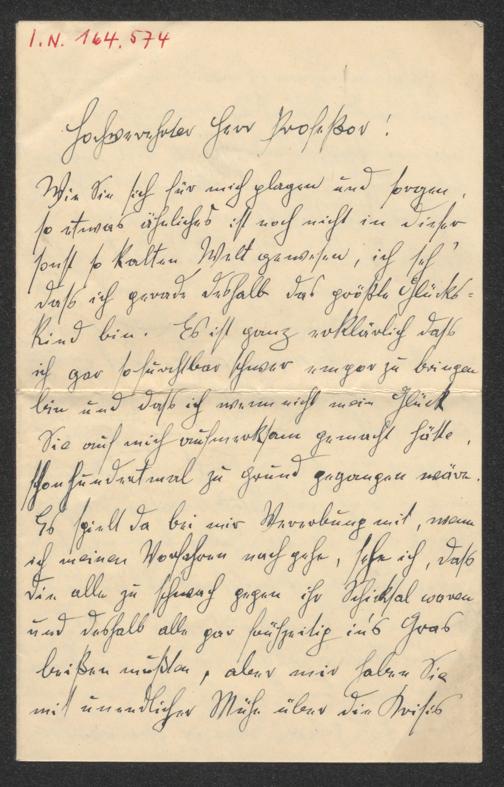 I.N. 164.574
Hochverehrter Herr Profeßor!
Wie Sie sich für mich plagen und sorgen,
so etwas ähnliches ist noch nicht in dieser
sonst so kalten Welt gewesen, ich seh'
dass ich gerade deshalb das größte Glücks-
kind bin. Es ist ganz erklärlich dass
ich gar so furchtbar schwer empor zu bringen
bin und dass ich wenn nicht mein Glück
Sie auf mich aufmerksam gemacht hätte,
schon hundertmal zu grund gegangen wäre.
Es spielt da bei mir Vererbung mit, wenn
ich meinen Vorfahren nachgehe, sehe ich, dass
die alle zu schwach gegen ihr Schicksal waren
und deshalb alle gar frühzeitig in's Gras
beißen mußten, aber mir haben Sie
mit unendlicher Mühe über die Krisis